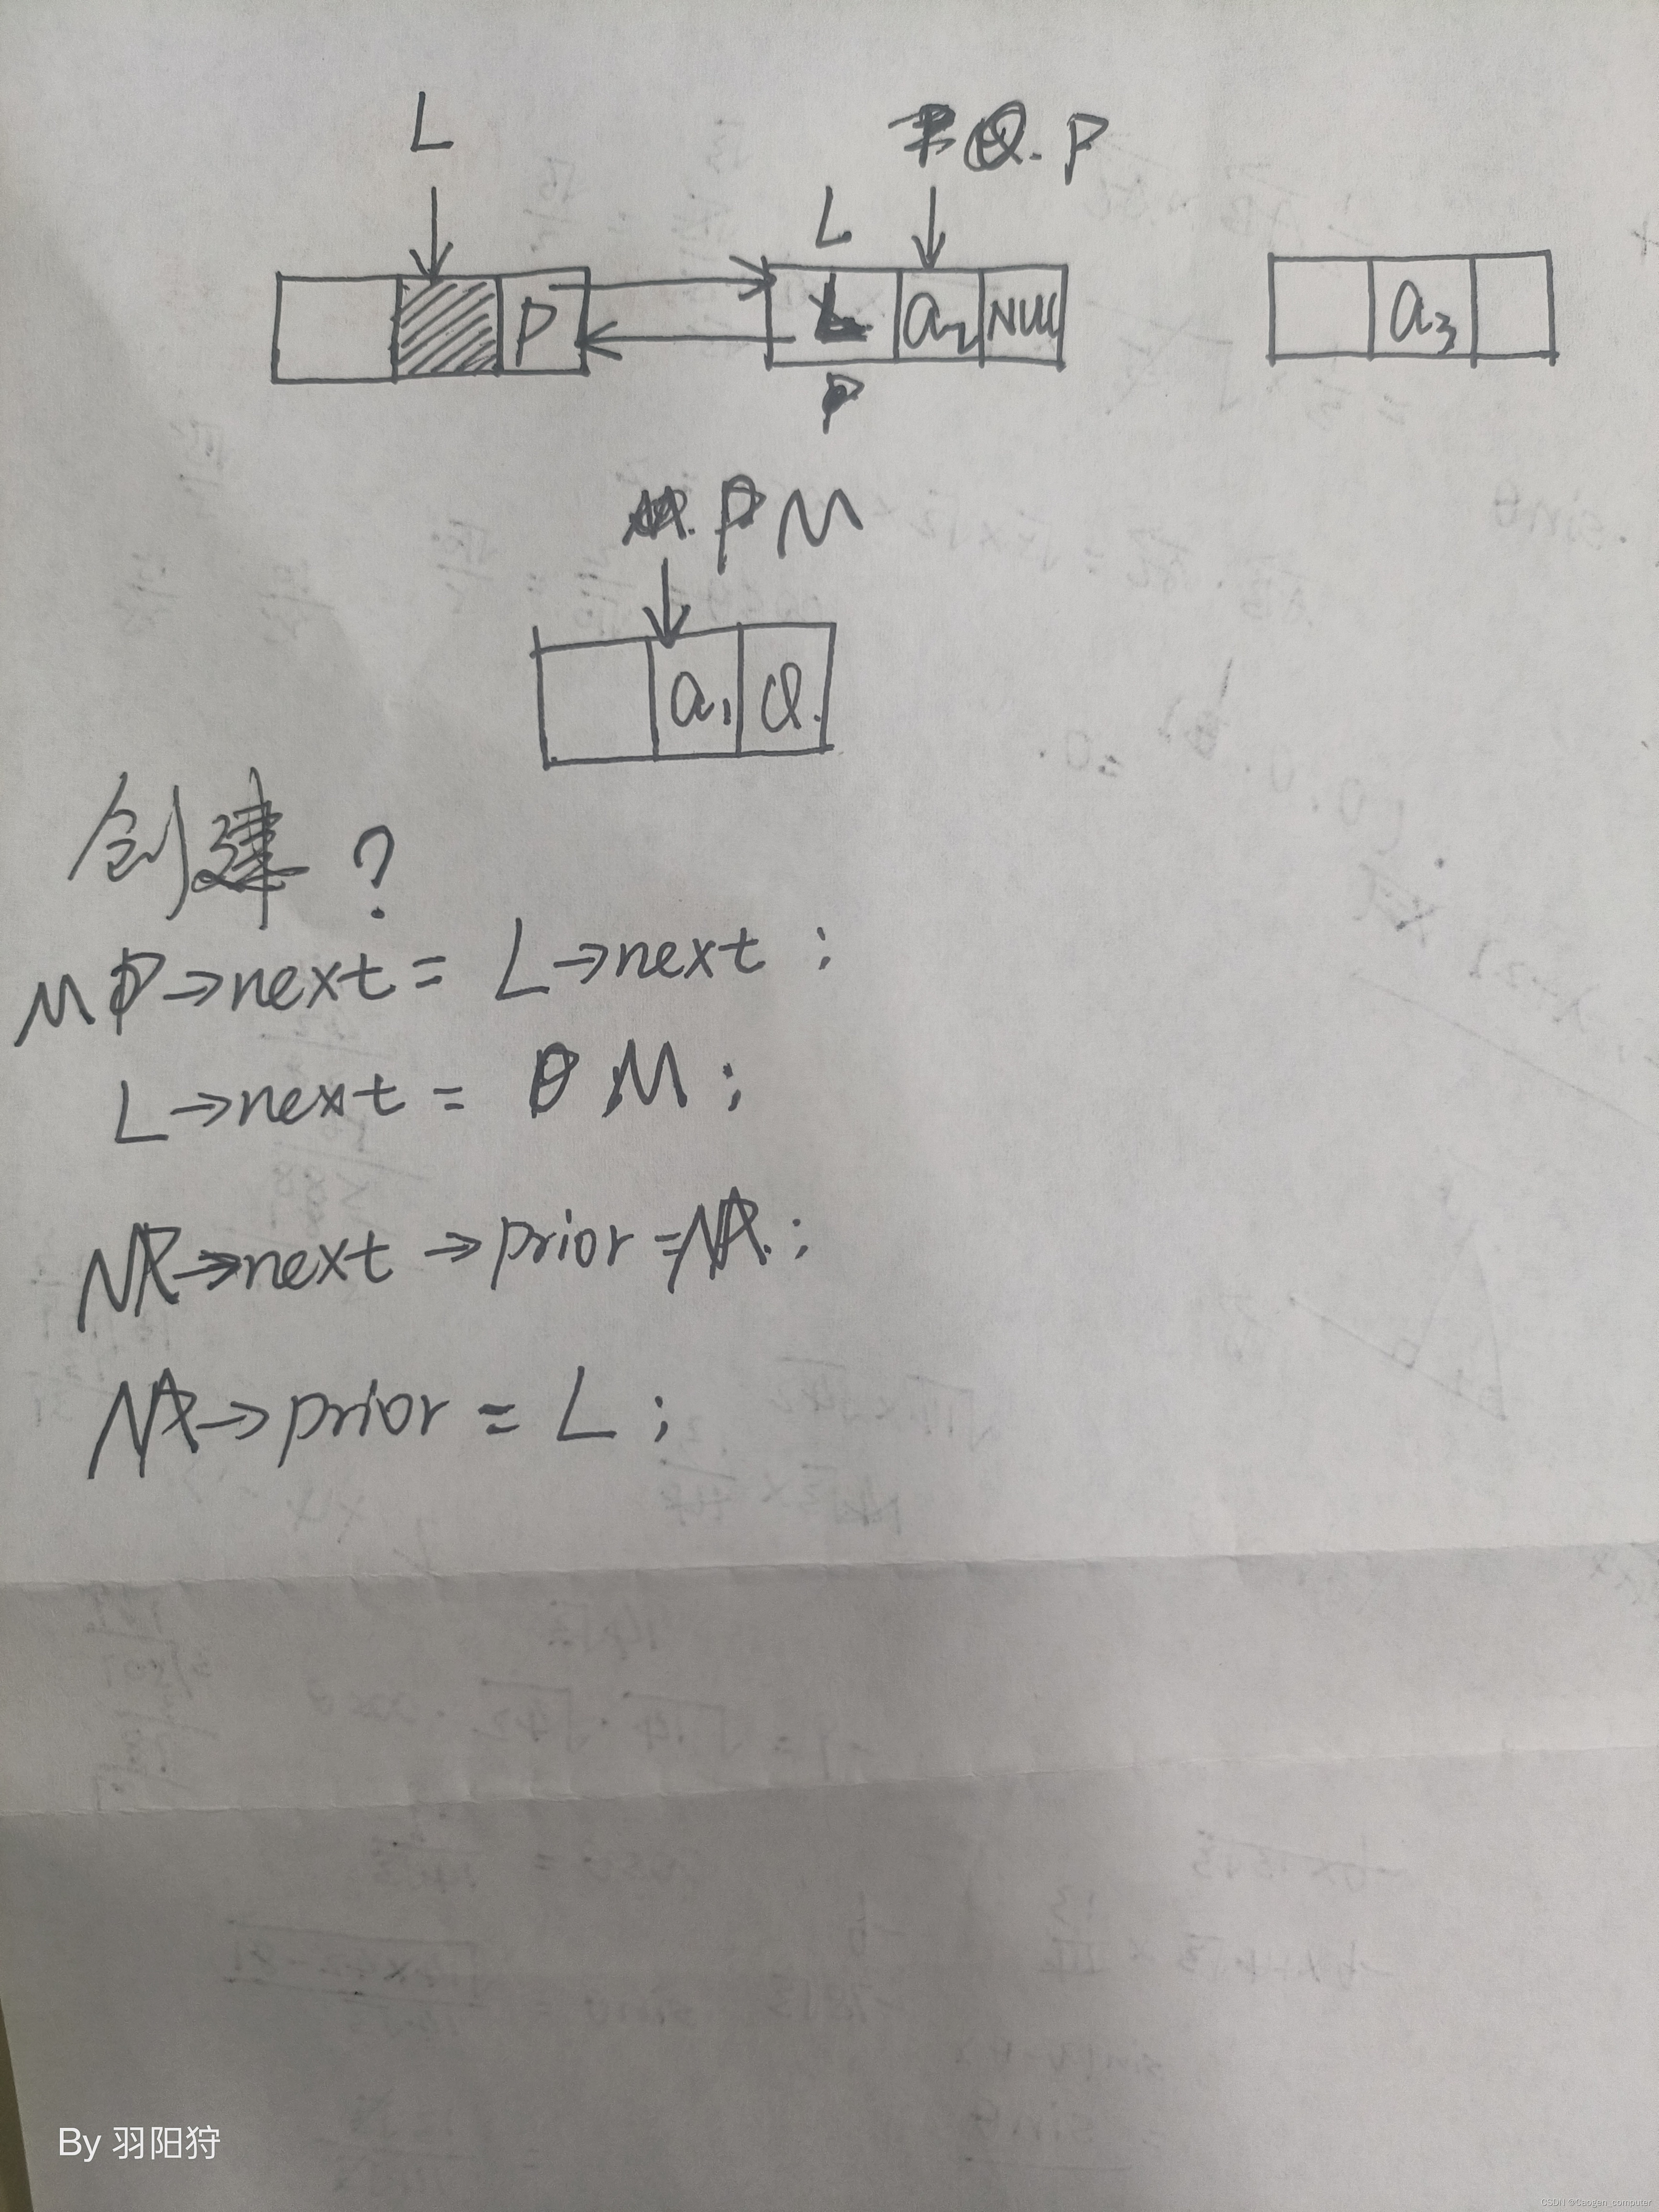 L
Q. P
L
P a₂ NULL
a₃
P
P M
a₁ Q.
创建？
M P→next = L→next ;
L→next = M ;
→next →prior = ;
→prior = L ;
By 羽阳狩
CSDN @Caogen_computer